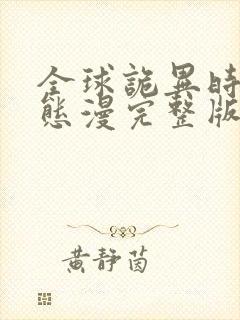 全球詭異時
態漫完整版
黃靜茵